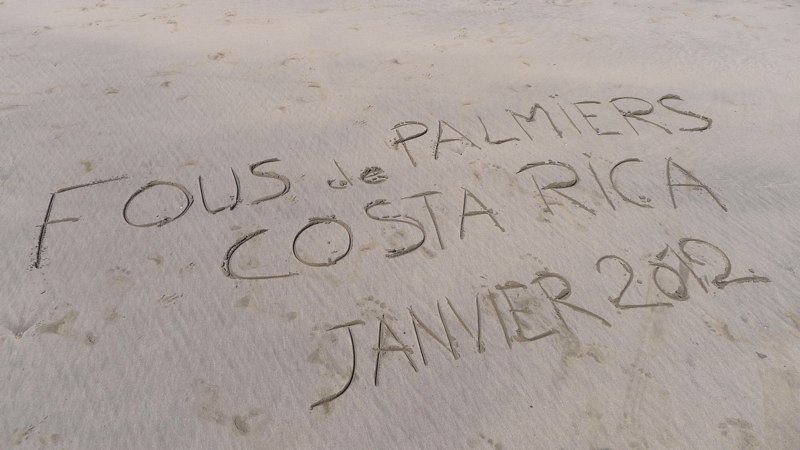 FOUS de PALMIERS
COSTA RICA
JANVIER 2012